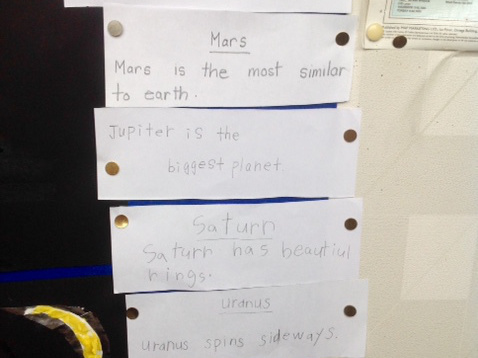 Mars
Mars is the most similar
to earth.
Jupiter is the
biggest planet
Saturn
Saturn has beautiul
rings.
uranus
uranus spins sideways.